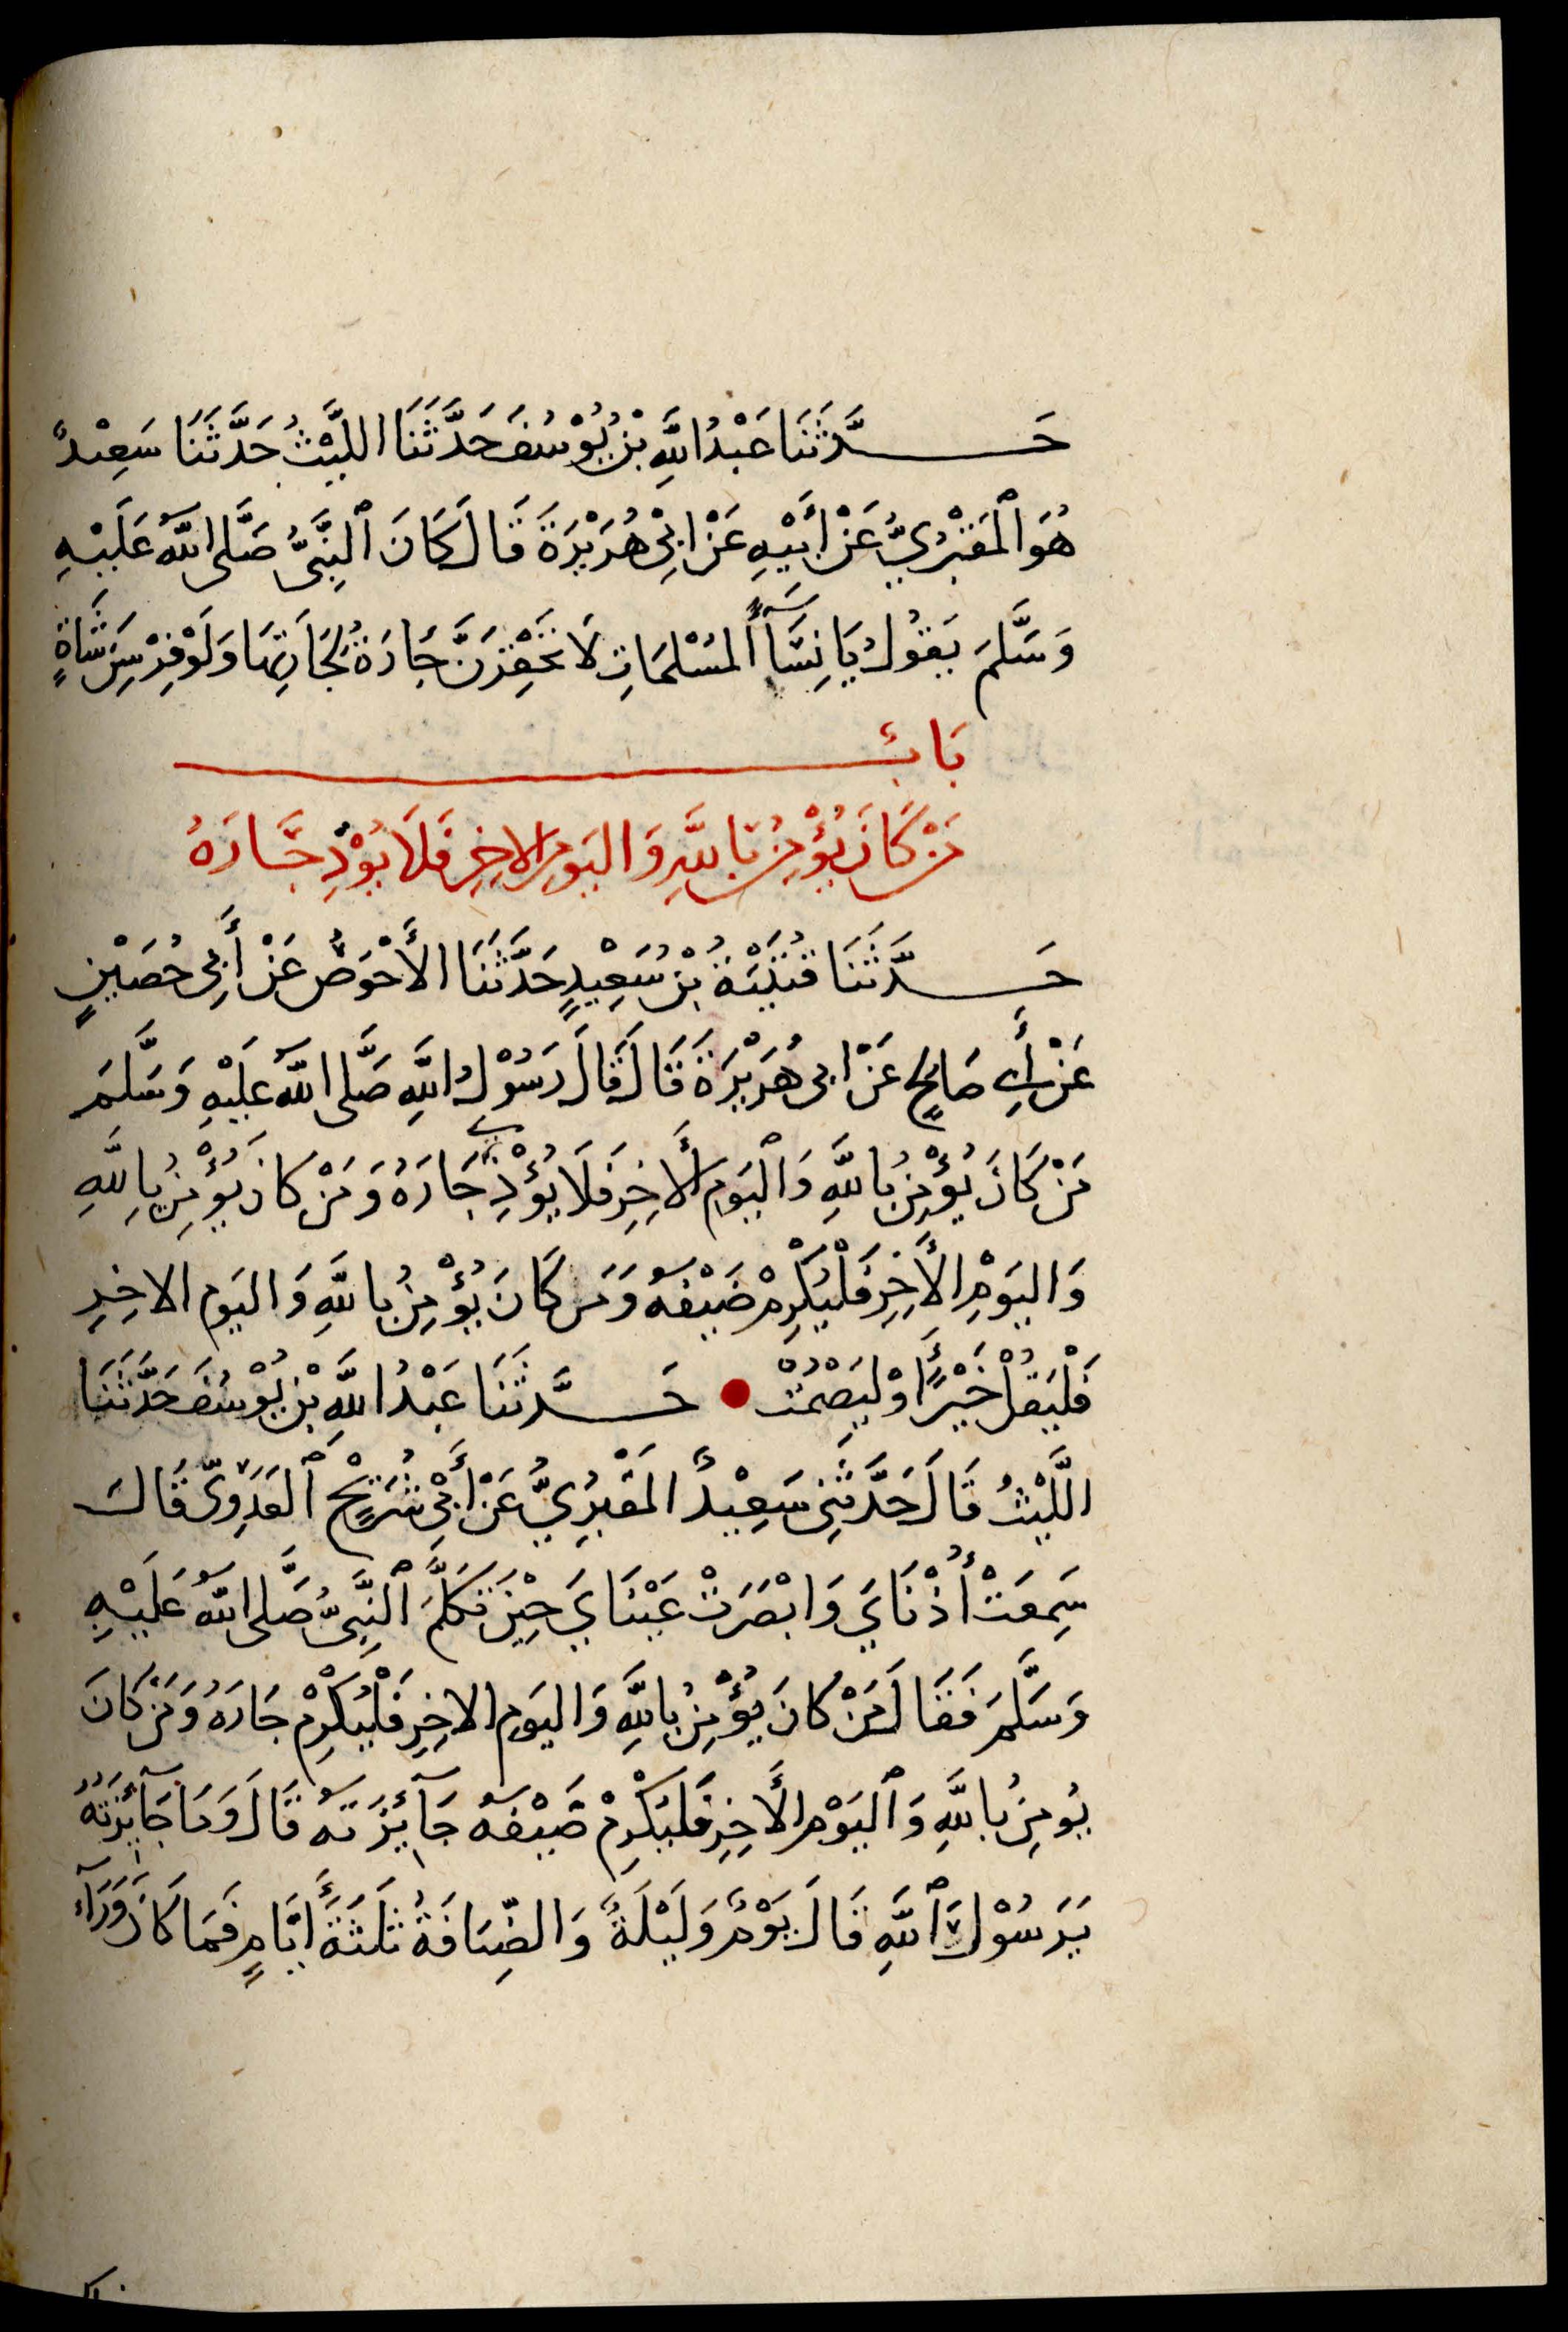 حَدَّثَنَا عَبْدُ اللَّهِ بْنُ يُوْسُفَ حَدَّثَنَا اللَّيْثُ حَدَّثَنَا سَعِيْدٌ
هُوَ الْمَقْبُرِيُّ عَنْ أَبِيْهِ عَنْ ابِيْ هُرَيْرَةَ قَالَ كَانَ النَّبِيُّ صَلَّى اللَّهُ عَلَيْهِ
وَسَلَّمَ يَقُوْلُ يَا نِسَآءَ الْمُسْلِمَاتِ لَا تَحْقِرَنَّ جَارَةٌ لِجَارَتِهَا وَلَوْ فِرْسِنَ شَاةٍ
بَابُ
مَنْ كَانَ يُؤْمِنُ بِاللَّهِ وَاليَومِ الاخِرِ فَلَا يُؤْذِ جَارَهُ
حَدَّثَنَا قُتَيْبَةُ بْنُ سَعِيْدٍ حَدَّثَنَا الأَحْوَصُ عَنْ أَبِي حُصَيْنٍ
عَنْ أَبِي صَالِحٍ عَنْ ابى هُرَيْرَةَ قَالَ قَالَ رَسُوْلُ اللَّهِ صَلَّى اللَّهُ عَلَيْهِ وَسَلَّمَ
مَنْ كَانَ يُؤْمِنُ بِاللَّهِ وَالْيَومِ الأَخِرِ فَلَا يُؤْذِ جَارَهُ وَمَنْ كَانَ يُؤْمِنُ بِاللَّهِ
وَاليَوْمِ الأَخِرِ فَلْيُكْرِمْ ضَيْفَهُ وَمَن كَانَ يُؤْمِنُ بِاللَّهِ وَاليَومِ الاخِرِ
فَلْيَقُلْ خَيْرًا اوْ لِيَصْمُتْ حَدَّثَنَا عَبْدُ اللَّهِ بْنُ يُوْسُفَ حَدَّثَنَا
اللَّيْثُ قَالَ حَدَّثَنِى سَعِيْدٌ المَقْبُرِيُّ عَنْ أَبِيْ شُرَيْحٍ الْعَدَوِىِّ قَالَ
سَمِعَتْ أُذْنَايَ وَابْصَرَتْ عَيْنَايَ حِيْنَ تَكَلَّمَ النَّبِىُّ صَلَّى اللَّهُ عَلَيْهِ
وَسَلَّمَ فَقَالَ مَنْ كَانَ يُؤْمِنُ بِاللَّهِ وَاليَومِ الاخِرِ فَلْيُكْرِمْ جَارَهُ وَمَنْ كَانَ
يُومِنُ بِاللَّهِ وَالْيَوْمِ الأَخِرِ فَليُكْرِمْ ضَيْفَهُ جَآئِزَتَهُ قَالَ وَمَا جَآئِزَتُهُ
يَرَسُوْلَ اللَّهِ قَالَ يَوْمٌ وَلَيْلَةٌ وَالضِّيَافَةُ ثَلَثَةُ أَيَّامٍ فَمَا كَانَ وَرَآءَ